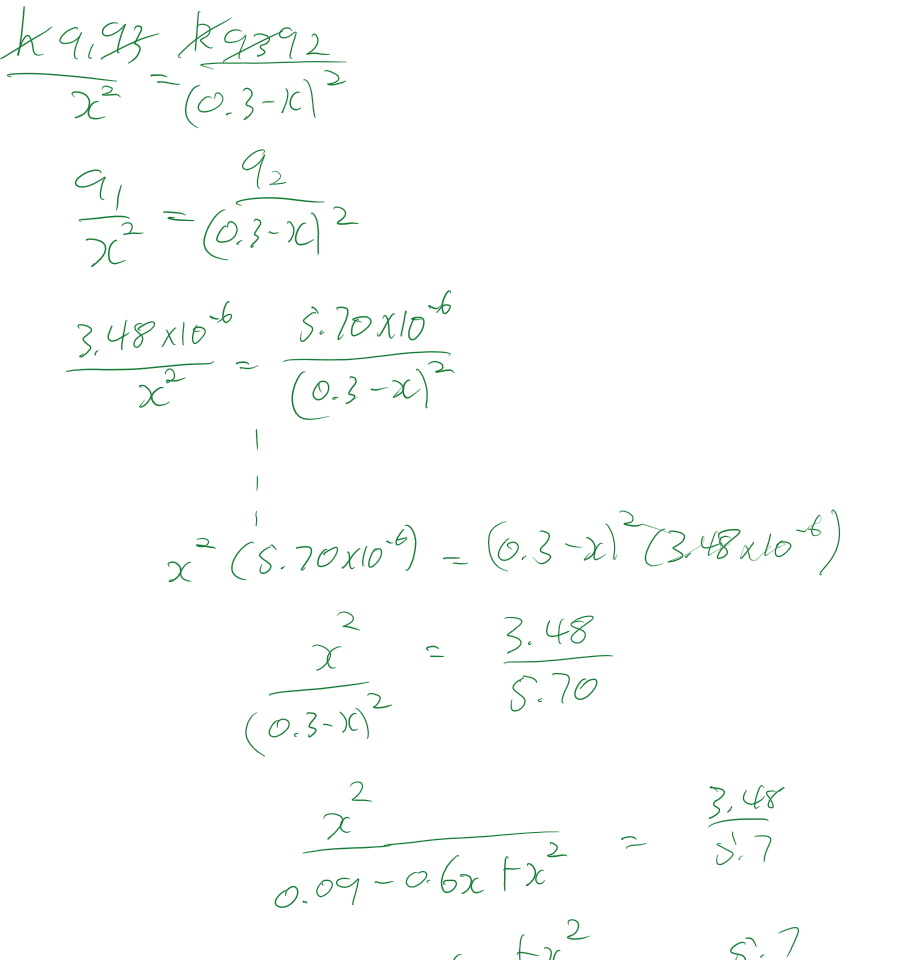 kq₁q₃/x² = kq₃q₂/(0.3-x)²
q₁/x² = q₂/(0.3-x)²
3.48×10⁻⁶/x² = 5.70×10⁻⁶/(0.3-x)²
x² (5.70×10⁻⁶) = (0.3-x)² (3.48×10⁻⁶)
x²/(0.3-x)² = 3.48/5.70
x²/(0.09-0.6x+x²) = 3.48/5.7
+x² 5.7